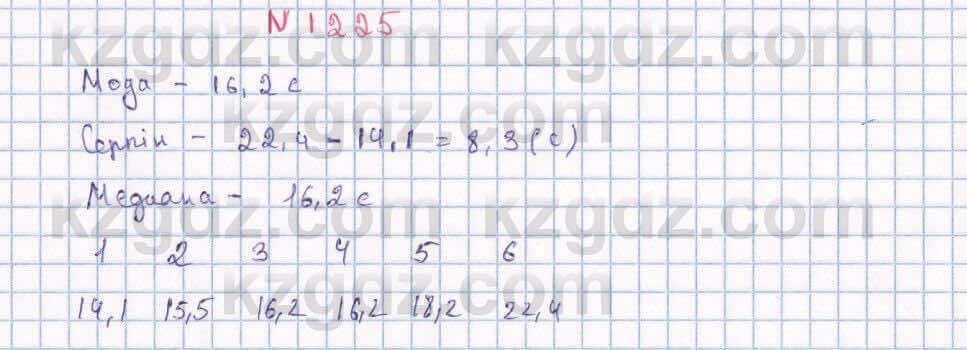 N 1225
Мода - 16,2 с
Серпін - 22,4 - 14,1 = 8,3 (с)
Медиана - 16,2 с
1 2 3 4 5 6
14,1 15,5 16,2 16,2 18,2 22,4
kzgdz.com kzgdz.com
kzgdz.com
kzgdz.com kzgdz.com
kzgdz.com